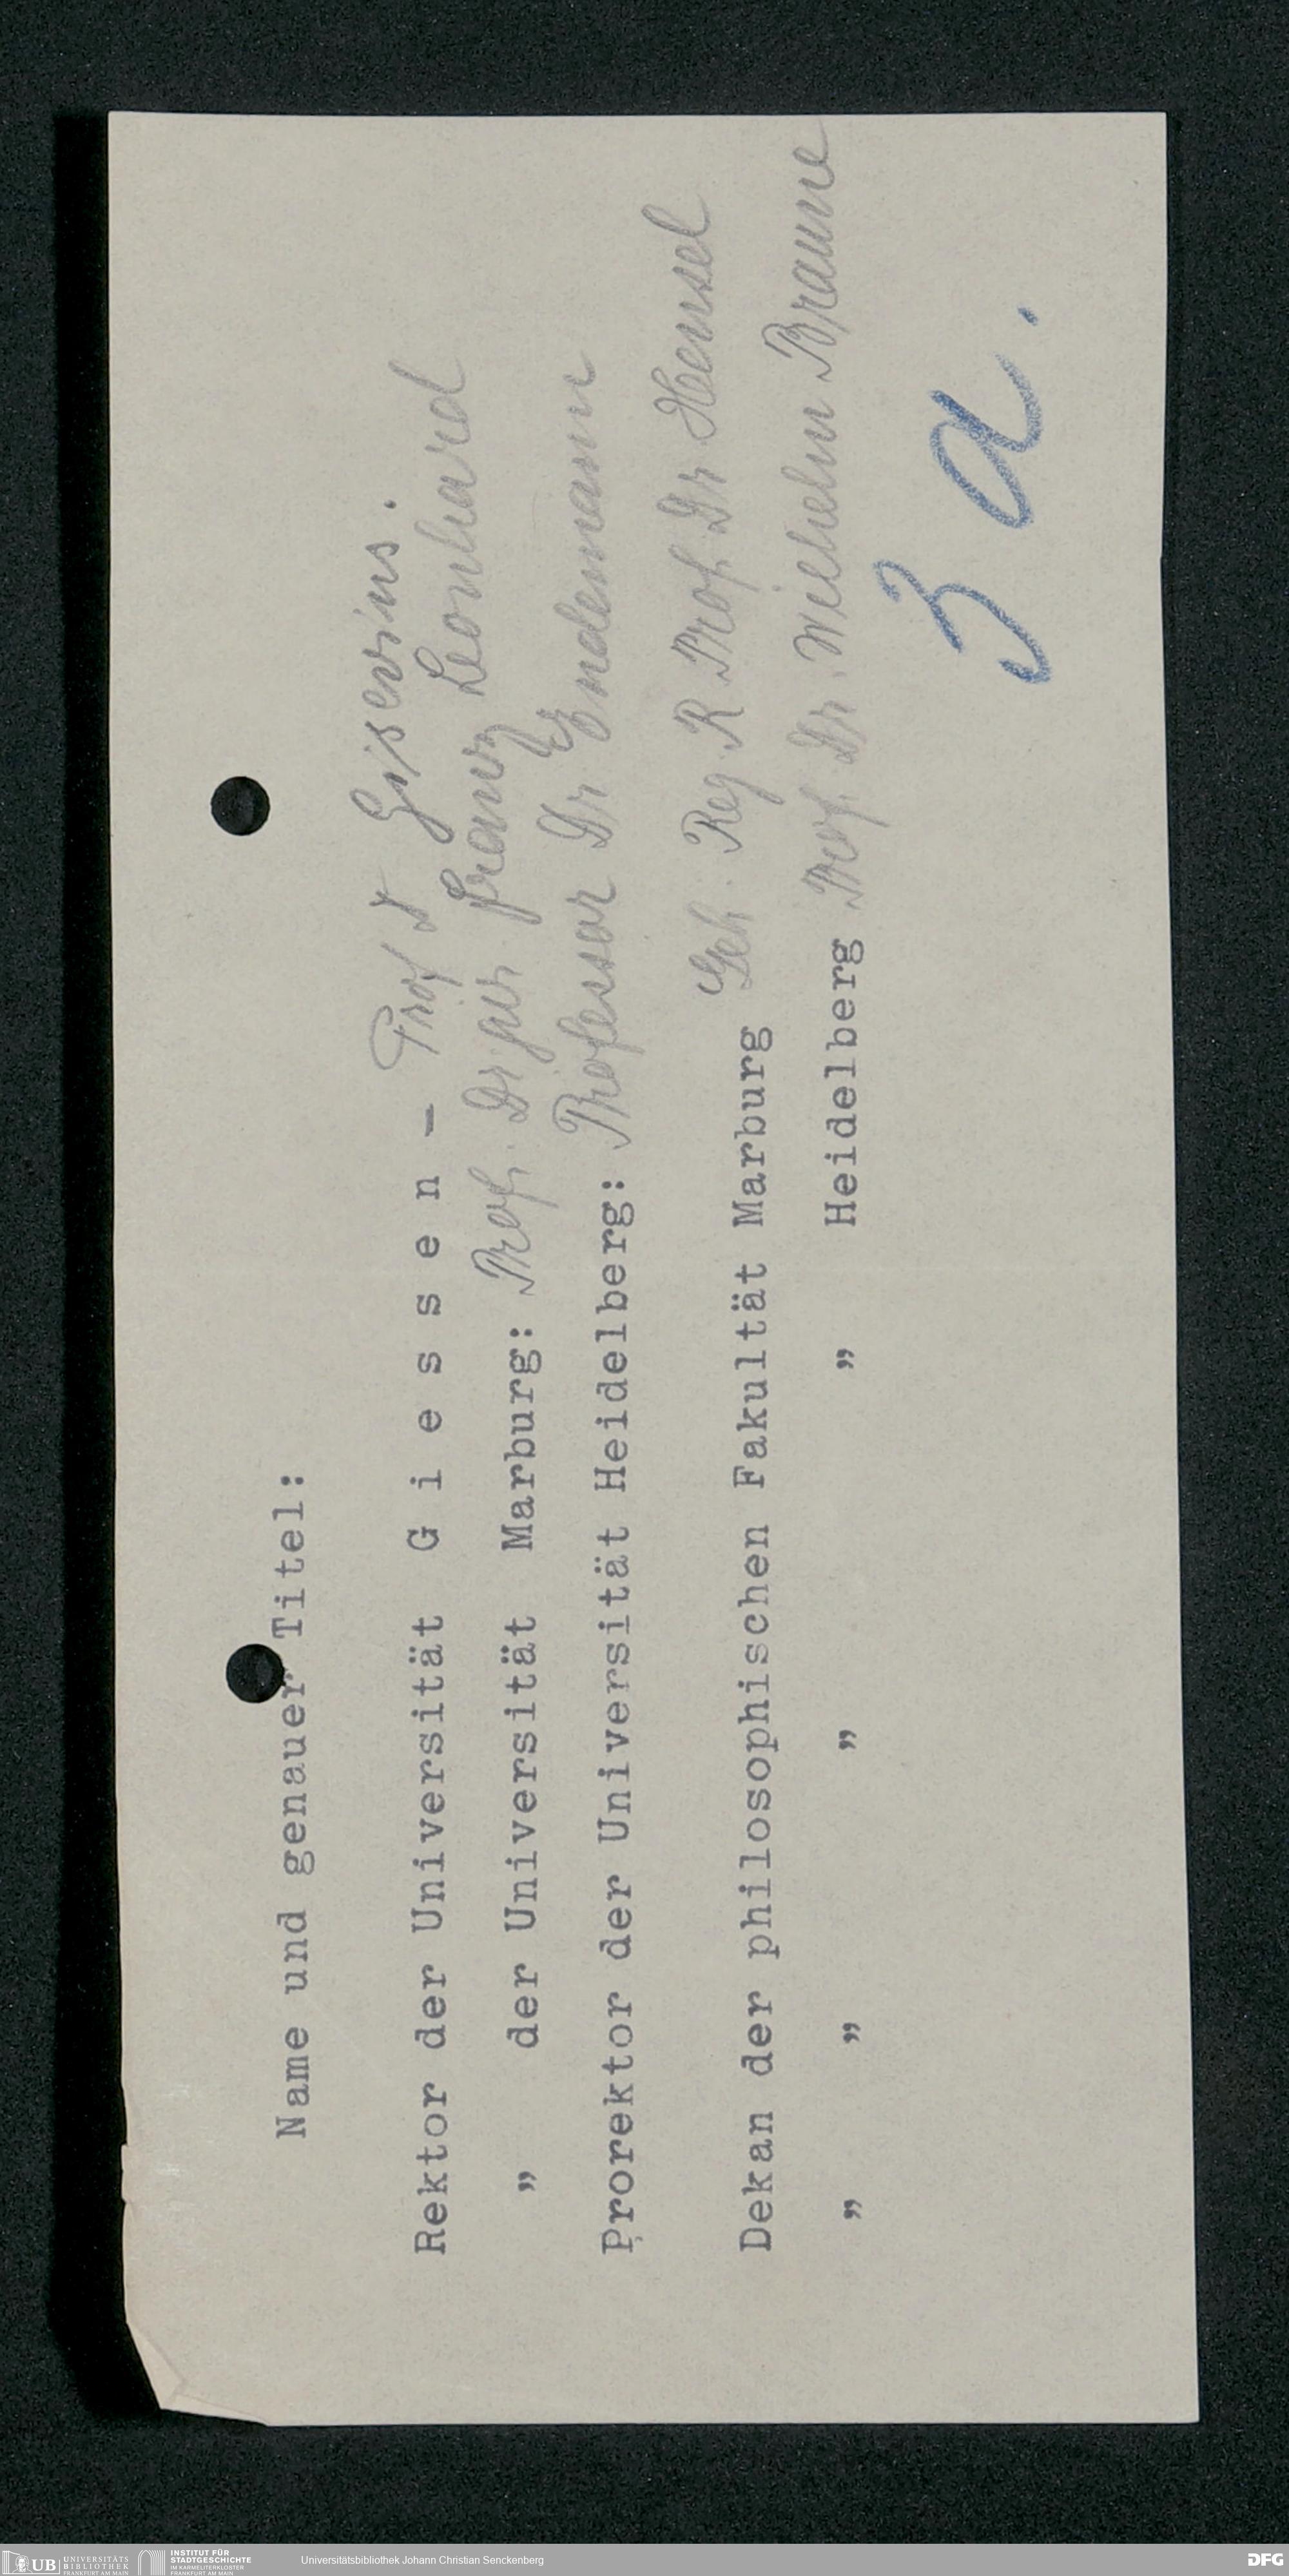 Name und genauer Titel:
Rektor der Universität G i e s s e n - Prof Dr Gisevius.
„ der Universität Marburg: Prof. Dr jur. Franz Leonhard
Prorektor der Universität Heidelberg: Professor Dr Endemann
Dekan der philosophischen Fakultät Marburg Geh. Reg. R Prof. Dr Hensel
„ „ „ „ Heidelberg Prof. Dr. Wilhelm Braune
3 a.
UB UNIVERSITÄTS
BIBLIOTHEK
FRANKFURT AM MAIN
INSTITUT FÜR
STADTGESCHICHTE
IM KARMELITERKLOSTER
FRANKFURT AM MAIN
Universitätsbibliothek Johann Christian Senckenberg
DFG